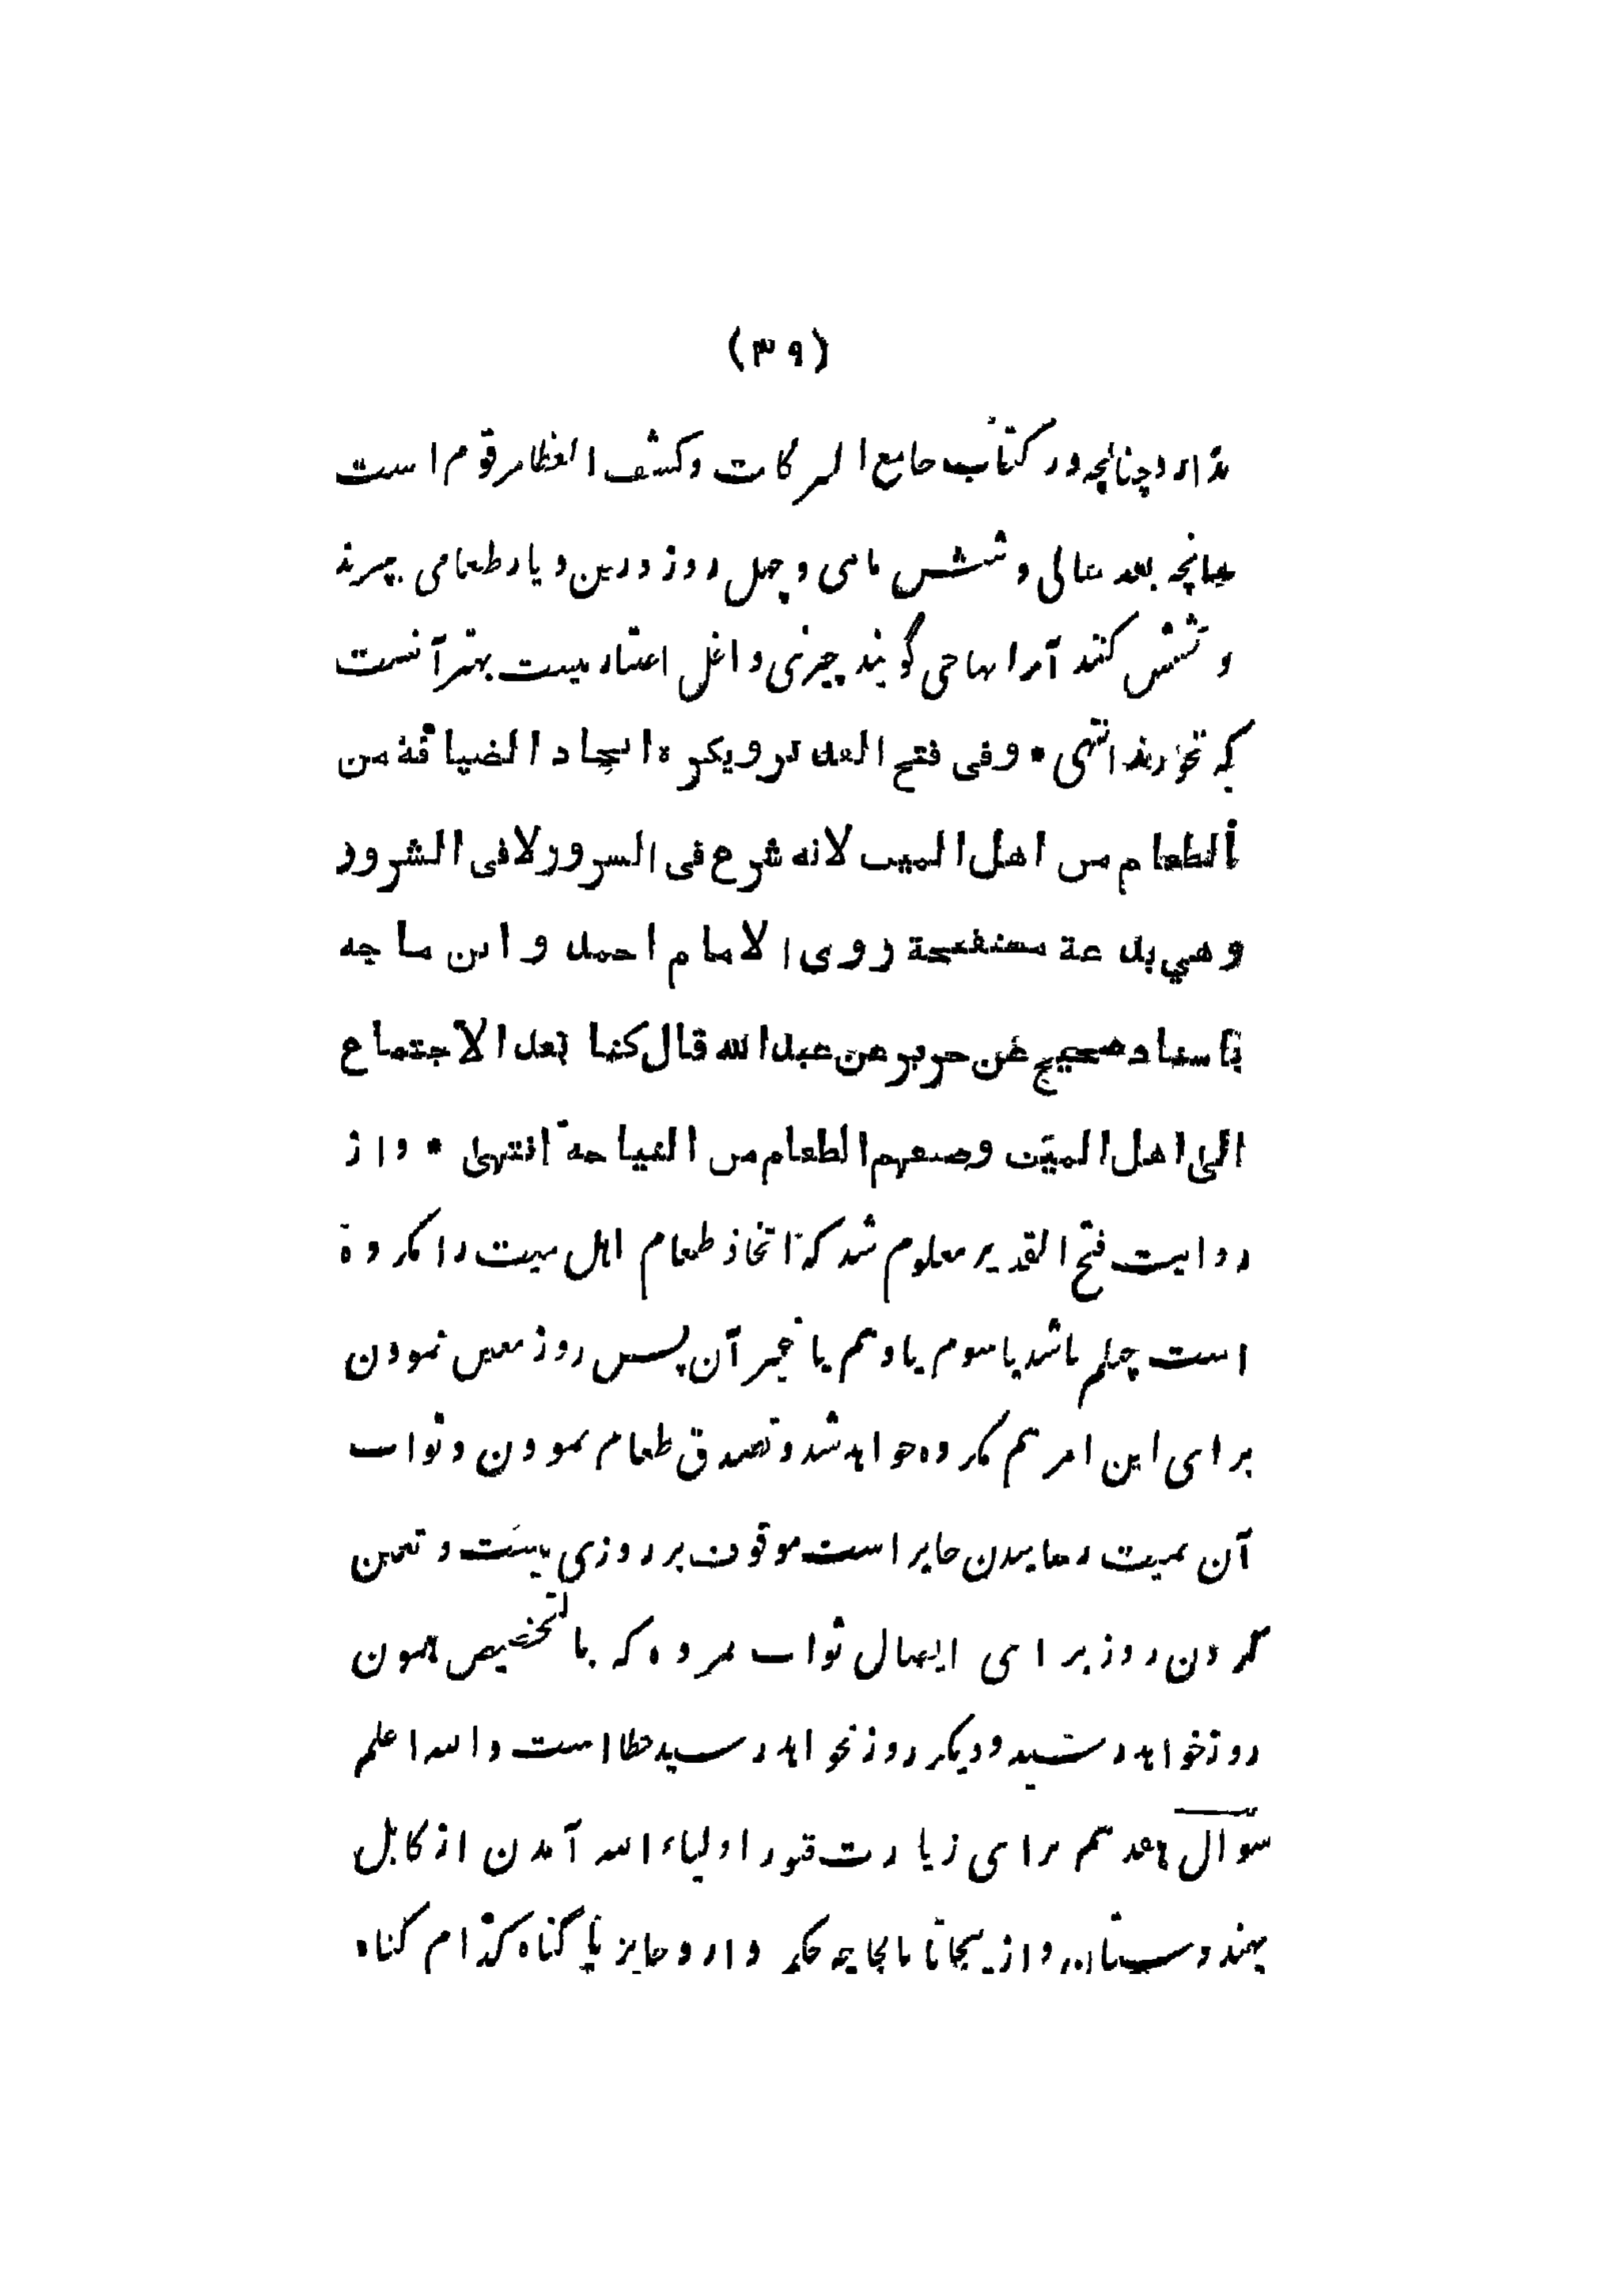 (۳۹)
ندارد چنانچه در کتاب جامع البرکات و کشف الغطا مرقوم است
چنانچه بعد سالی و شش ماهی و چهل روز درین دیار طعامی بپزند
و بخشش کنند آنرا بهاجی گویند چیزی داخل اعتداد نیست بهتر آنست
که نخورند انتهی * وفی فتح القدیر ویکره اتخاد الضیافة من
الطعام من اهل المیت لانه شرع فی السرور لا فی الشرور
وهي بدعة مستقبحة روی الامام احمد وابن ماجه
باسناد صحیح عن جریر بن عبد الله قال کنا نعد الاجتماع
الی اهل المیّت وصنعهم الطعام من النیاحة انتهی * و از
روایت فتح القدیر معلوم شد که اتخاذ طعام اهل میت را مکروه
است چهلم باشد یا سوم یا دهم یا غیر آن پس روز معین نمودن
برای این امر هم مکروه خواهد شد و تصدق طعام نمودن و ثواب
آن بمیت رسانیدن جایز است موقوف بر روزی نیست و تعین
کردن روز برای ایصال ثواب بمرده که بالتخصیص همون
روز خواهد رسید و دیگر روز نخواهد رسید خطا است والله اعلم
سوال هفدهم برای زیارت قبور اولیاء الله آمدن از کابل
بهندوستان و از ینجا تا بانجا چه حکم دارد جایز یا گناه کدام گناه